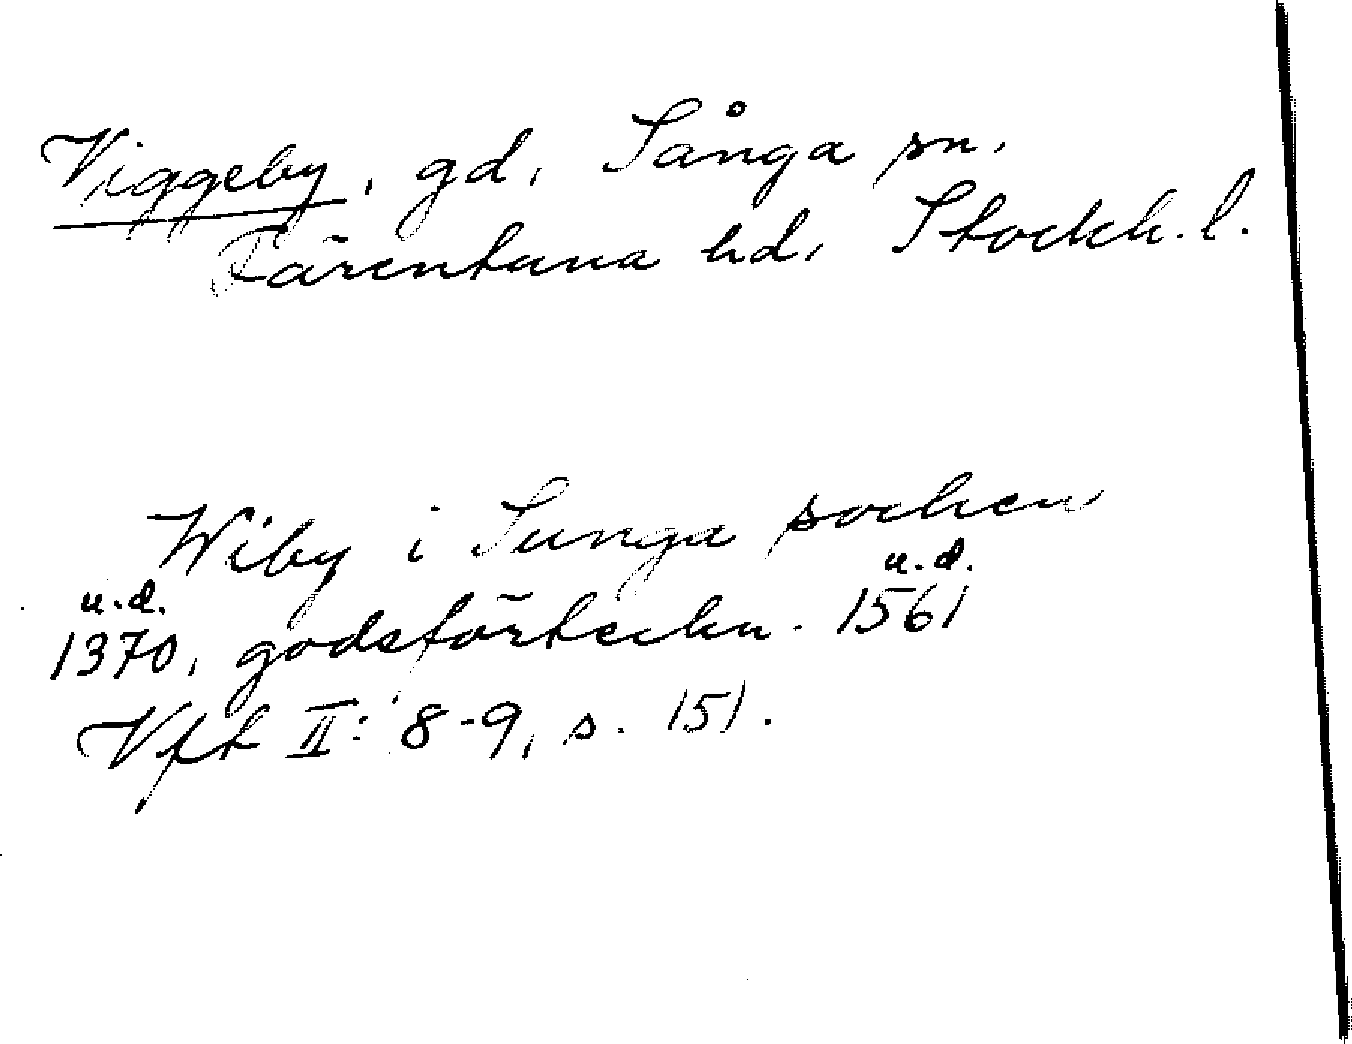 Viggeby, gd, Sånga sn.
Färentuna hd, Stockh. l.
Wiby i Sunga sochen
u.d. u.d.
1370, godsförteckn. 1561
Vft II: 8-9, s. 151.